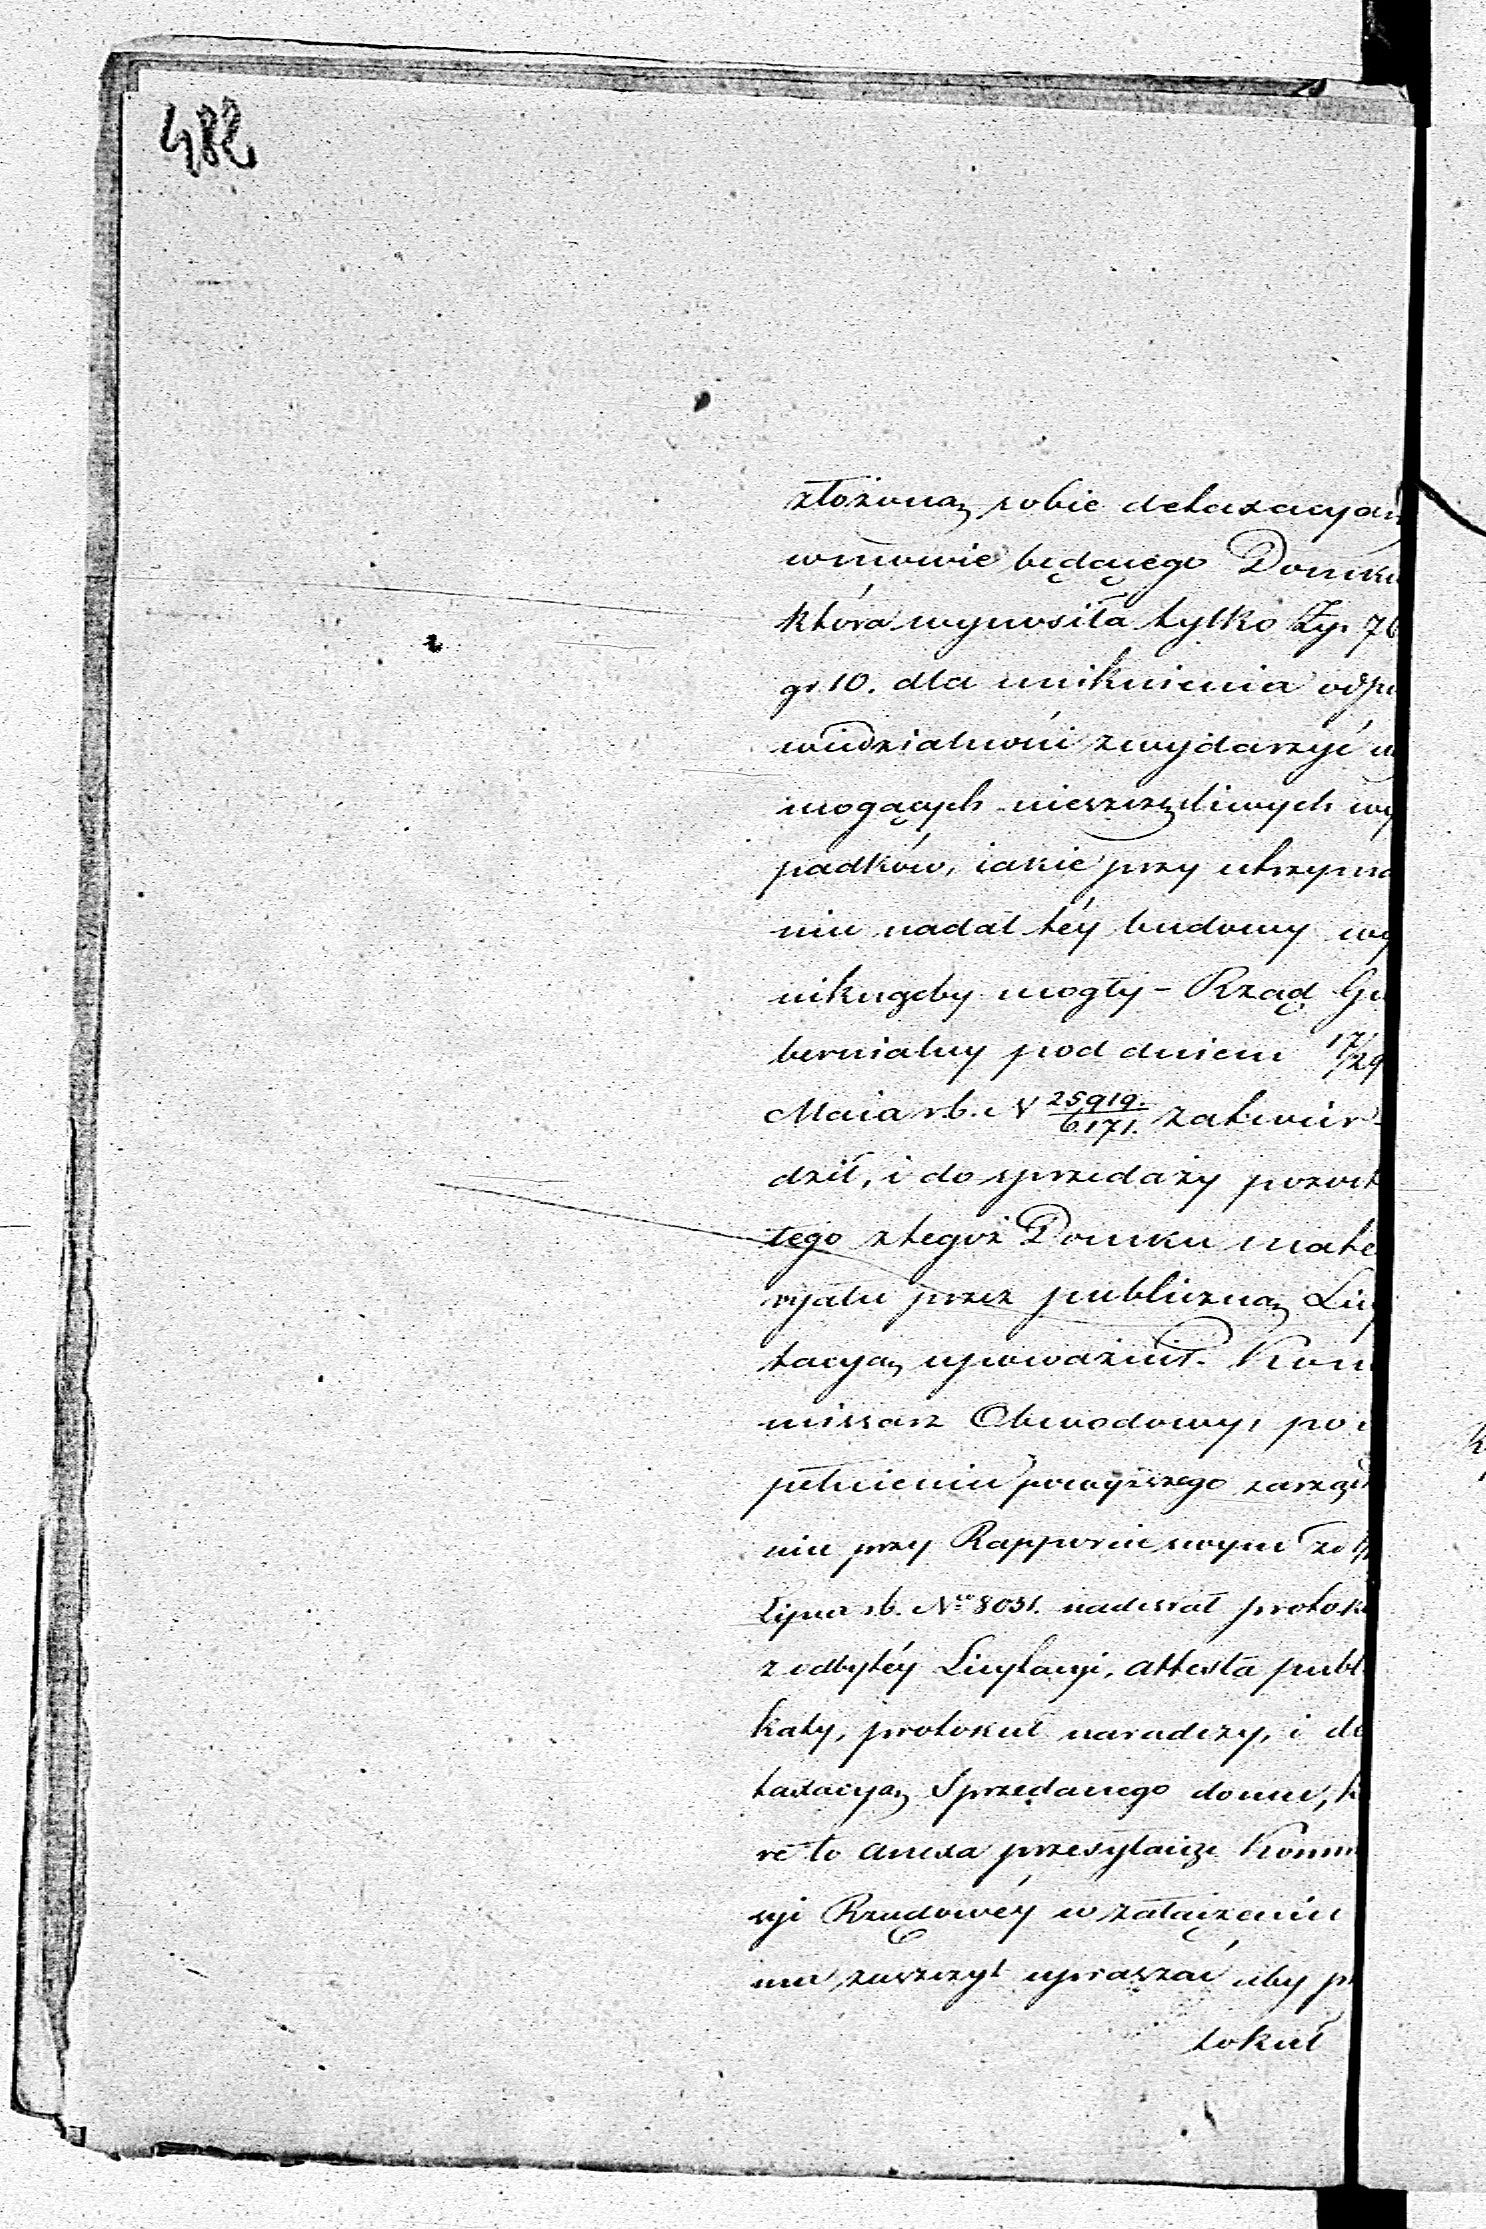 482
złożoną sobie detaxacyą
wmowie będącego Domku
która wynosiła tylko Złp. 76
gr 10. dla uniknienia odpo
wiedzialności zwydarzyć
mogących nieszczęśliwych wy
padków, iakie przy utrzyma
niu nadal téy budowy wy
niknąćby mogły – Rząd Gu
bernialny pod dniem 17/29
Maia rb. N 25919./6171. zatwier-
dził, i do sprzedaży pozost
łego ztegoż Domku mate
ryału przez publiczną Licy
tacyą upoważnił. Kom
missarz Obwodowy, po
pełnieniu powyższego zarządz
niu przy Rapporcie swym ze
Lipca rb. No 8051. nadesłał protoku
z odbytéy Licytacyi, attesta publi
katy, protokuł naradczy, i de
taxacyą Sprzedanego domu, k
re to anexa przesyłaiąc Kommi
syi Rządowéy w załączeniu
ma zaszczyt upraszać aby pr
tokuł